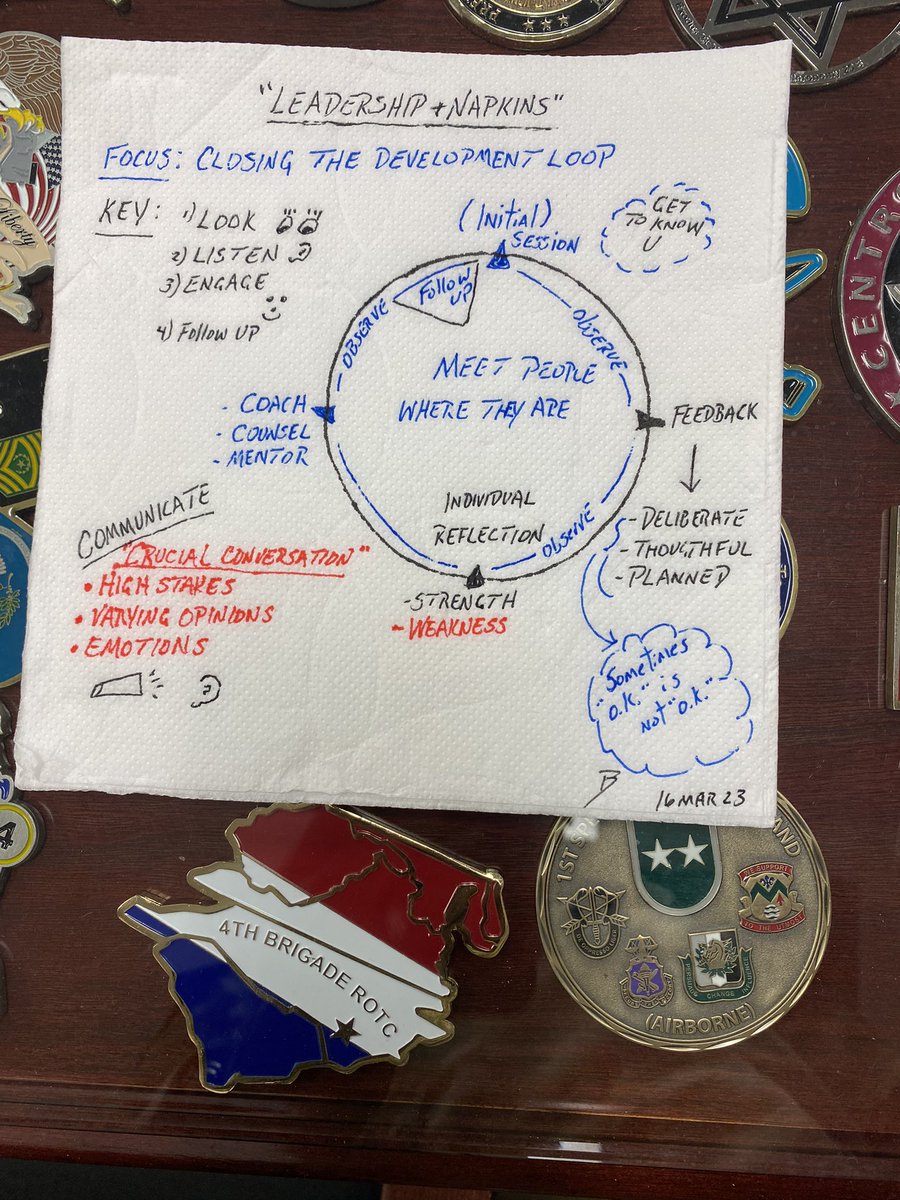 "LEADERSHIP + NAPKINS"
FOCUS: CLOSING THE DEVELOPMENT LOOP
KEY: 1) LOOK
2) LISTEN
3) ENGAGE
4) Follow UP
(Initial)
SESSION
GET
TO KNOW
U
Follow
UP
OBSERVE
OBSERVE
MEET PEOPLE
WHERE THEY ARE
- COACH
- COUNSEL
- MENTOR
FEEDBACK
- DELIBERATE
- THOUGTHFUL
- PLANNED
INDIVIDUAL
REFLECTION
OBSERVE
- STRENGTH
- WEAKNESS
COMMUNICATE
"CRUCIAL CONVERSATION"
• HIGH STAKES
• VARYING OPINIONS
• EMOTIONS
"Sometimes
O.K." is
not "O.K."
16 MAR 23
Liberty
CENTR
4
4TH BRIGADE ROTC
1ST SP
AND
WE SUPPORT
TO THE UTMOST
PERSUADE CHANGE INFLUENCE
(AIRBORNE)